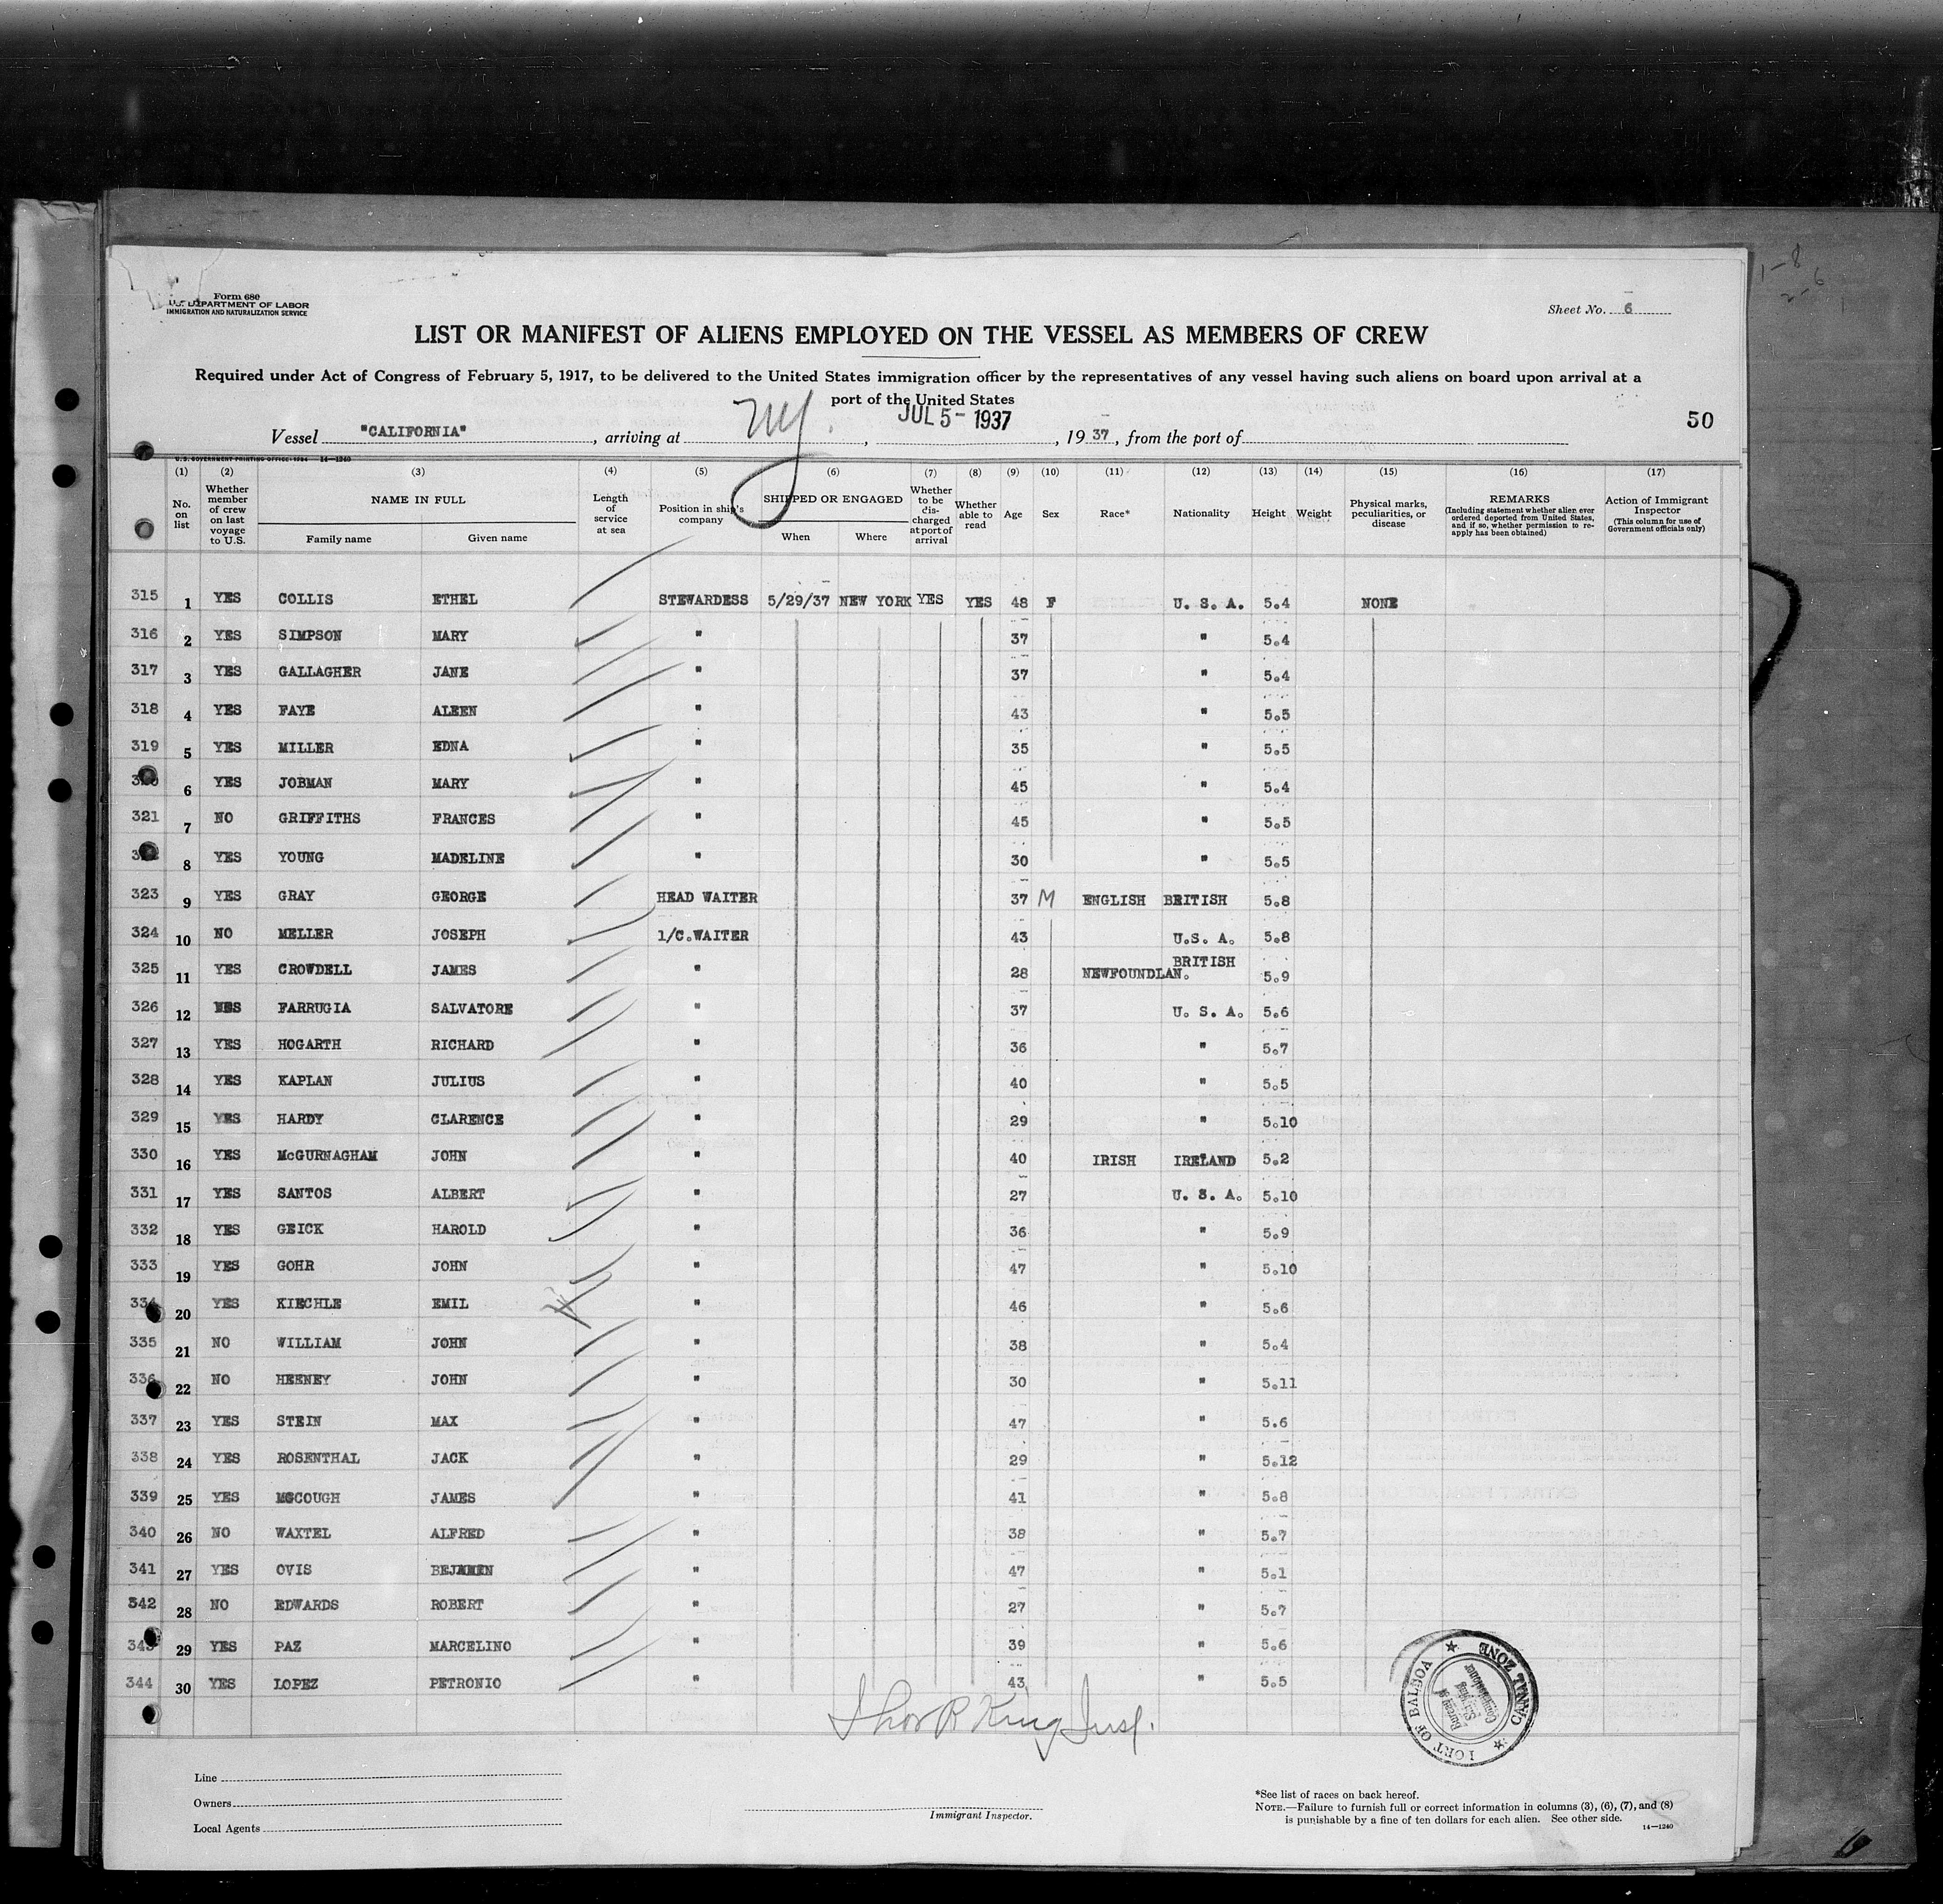 Form 680
U.S. DEPARTMENT OF LABOR
IMMIGRATION AND NATURALIZATION SERVICE
Sheet No. 6
LIST OR MANIFEST OF ALIENS EMPLOYED ON THE VESSEL AS MEMBERS OF CREW
Required under Act of Congress of February 5, 1917, to be delivered to the United States immigration officer by the representatives of any vessel having such aliens on board upon arrival at a
port of the United States
50
Vessel "CALIFORNIA", arriving at NY., JUL 5- 1937, 1937, from the port of
U.S. GOVERNMENT PRINTING OFFICE: 1934 14—1240
(1) (2) (3) (4) (5) (6) (7) (8) (9) (10) (11) (12) (13) (14) (15) (16) (17)
No. on list
Whether member of crew on last voyage to U.S.
NAME IN FULL
Family name Given name
Length of service at sea
Position in ship's company
SHIPPED OR ENGAGED
When Where
Whether to be discharged at port of arrival
Whether able to read
Age
Sex
Race*
Nationality
Height
Weight
Physical marks, peculiarities, or disease
REMARKS
(Including statement whether alien ever ordered deported from United States, and if so, whether permission to reapply has been obtained)
Action of Immigrant Inspector
(This column for use of Government officials only)
315 1 YES COLLIS ETHEL STEWARDESS 5/29/37 NEW YORK YES YES 48 F U. S. A. 5.4 NONE
316 2 YES SIMPSON MARY " 37 " 5.4
317 3 YES GALLAGHER JANE " 37 " 5.4
318 4 YES FAYE ALEEN " 43 " 5.5
319 5 YES MILLER EDNA " 35 " 5.5
320 6 YES JOBMAN MARY " 45 " 5.4
321 7 NO GRIFFITHS FRANCES " 45 " 5.5
322 8 YES YOUNG MADELINE " 30 " 5.5
323 9 YES GRAY GEORGE HEAD WAITER 37 M ENGLISH BRITISH 5.8
324 10 NO MELLER JOSEPH 1/C.WAITER 43 U.S. A. 5.8
325 11 YES CROWDELL JAMES " 28 NEWFOUNDLAN. BRITISH 5.9
326 12 YES FARRUGIA SALVATORE " 37 U. S. A. 5.6
327 13 YES HOGARTH RICHARD " 36 " 5.7
328 14 YES KAPLAN JULIUS " 40 " 5.5
329 15 YES HARDY CLARENCE " 29 " 5.10
330 16 YES McGURNAGHAM JOHN " 40 IRISH IRELAND 5.2
331 17 YES SANTOS ALBERT " 27 U. S. A. 5.10
332 18 YES GEICK HAROLD " 36 " 5.9
333 19 YES GOHR JOHN " 47 " 5.10
334 20 YES KIECHLE EMIL " 46 " 5.6
335 21 NO WILLIAM JOHN " 38 " 5.4
336 22 NO HEENEY JOHN " 30 " 5.11
337 23 YES STEIN MAX " 47 " 5.6
338 24 YES ROSENTHAL JACK " 29 " 5.12
339 25 YES MCCOUGH JAMES " 41 " 5.8
340 26 NO WAXTEL ALFRED " 38 " 5.7
341 27 YES OVIS BEJAMEN " 47 " 5.1
342 28 NO EDWARDS ROBERT " 27 " 5.7
343 29 YES PAZ MARCELINO " 39 " 5.6
344 30 YES LOPEZ PETRONIO " 43 " 5.5
Thos R King Insp.
PORT OF BALBOA ★ CANAL ZONE ★
Bureau of
Shipping
Commissioner
Line
Owners
Local Agents
Immigrant Inspector.
*See list of races on back hereof.
NOTE.—Failure to furnish full or correct information in columns (3), (6), (7), and (8)
is punishable by a fine of ten dollars for each alien. See other side.
14—1240
1-8
2-6